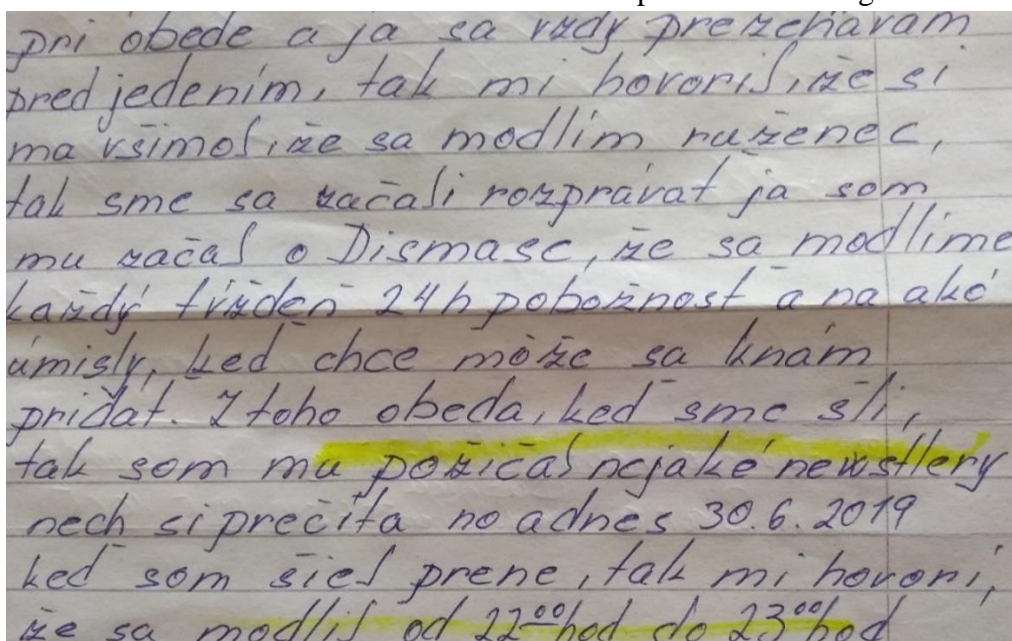 pri obede a ja sa vždy prežehávam
pred jedením, tak mi hovoril, že si
ma všimol, že sa modlím ruženec,
tak sme sa začali rozprávať ja som
mu začal o Dismase, že sa modlíme
každý tíždeň 24h pobožnosť a na aké
úmisly, keď chce môže sa knám
pridať. Z toho obeda, keď sme šli,
tak som mu požičal nejaké newstlery
nech si prečíta no a dnes 30.6.2019
keď som šiel prene, tak mi hovorí,
že sa modlil od 22⁰⁰hod do 23⁰⁰hod